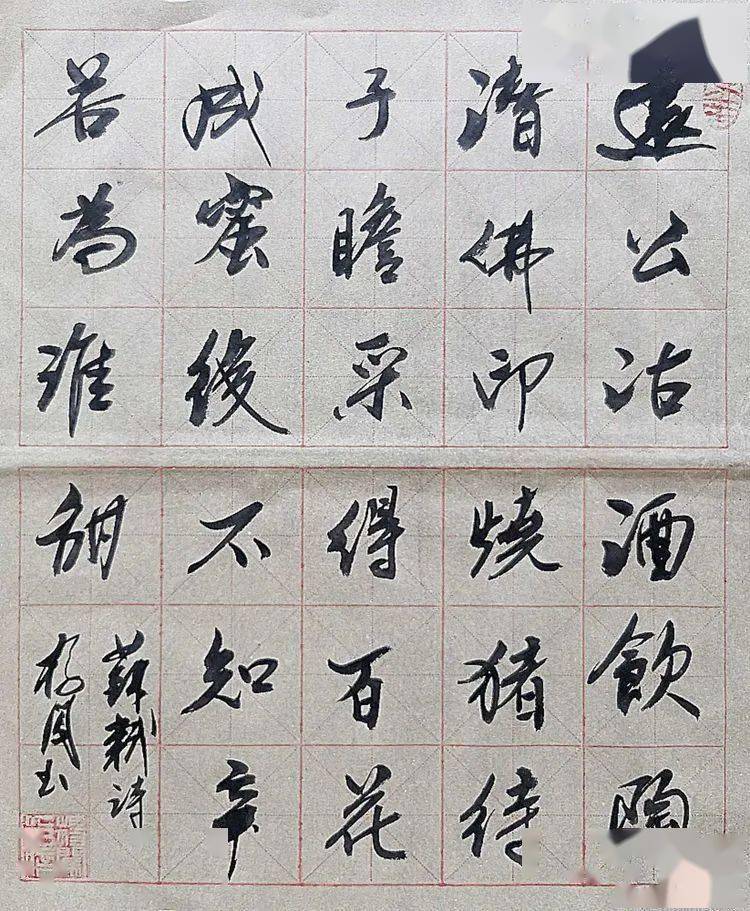 遠公沽酒飲陶
潛佛印燒猪待
子瞻采得百花
成蜜後不知辛
苦為誰甜
蘇軾詩